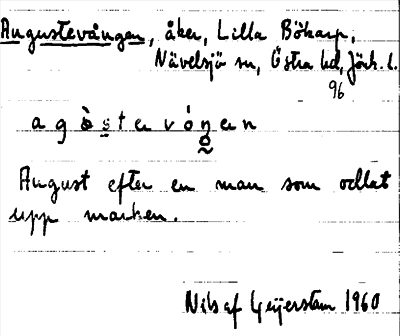 Augustevången, åker, Lilla Bökarp,
Nävelsjö sn, Östra hd, Jönk. l.
96
agòstevóŋen
August efter en man som odlat
upp marken.
Nils af Geijerstam 1960